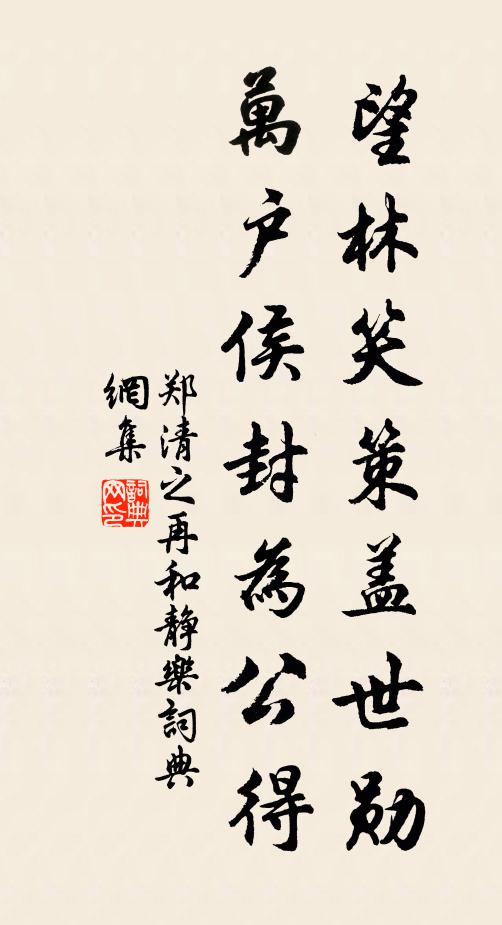 望林笑策盖世勋
萬户侯封為公得
郑清之再和静樂詞典
網集
詞典網印